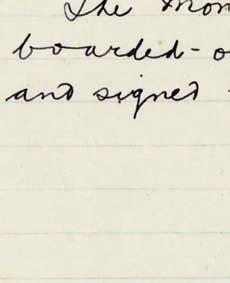 The Mon
boarded - o
and signed